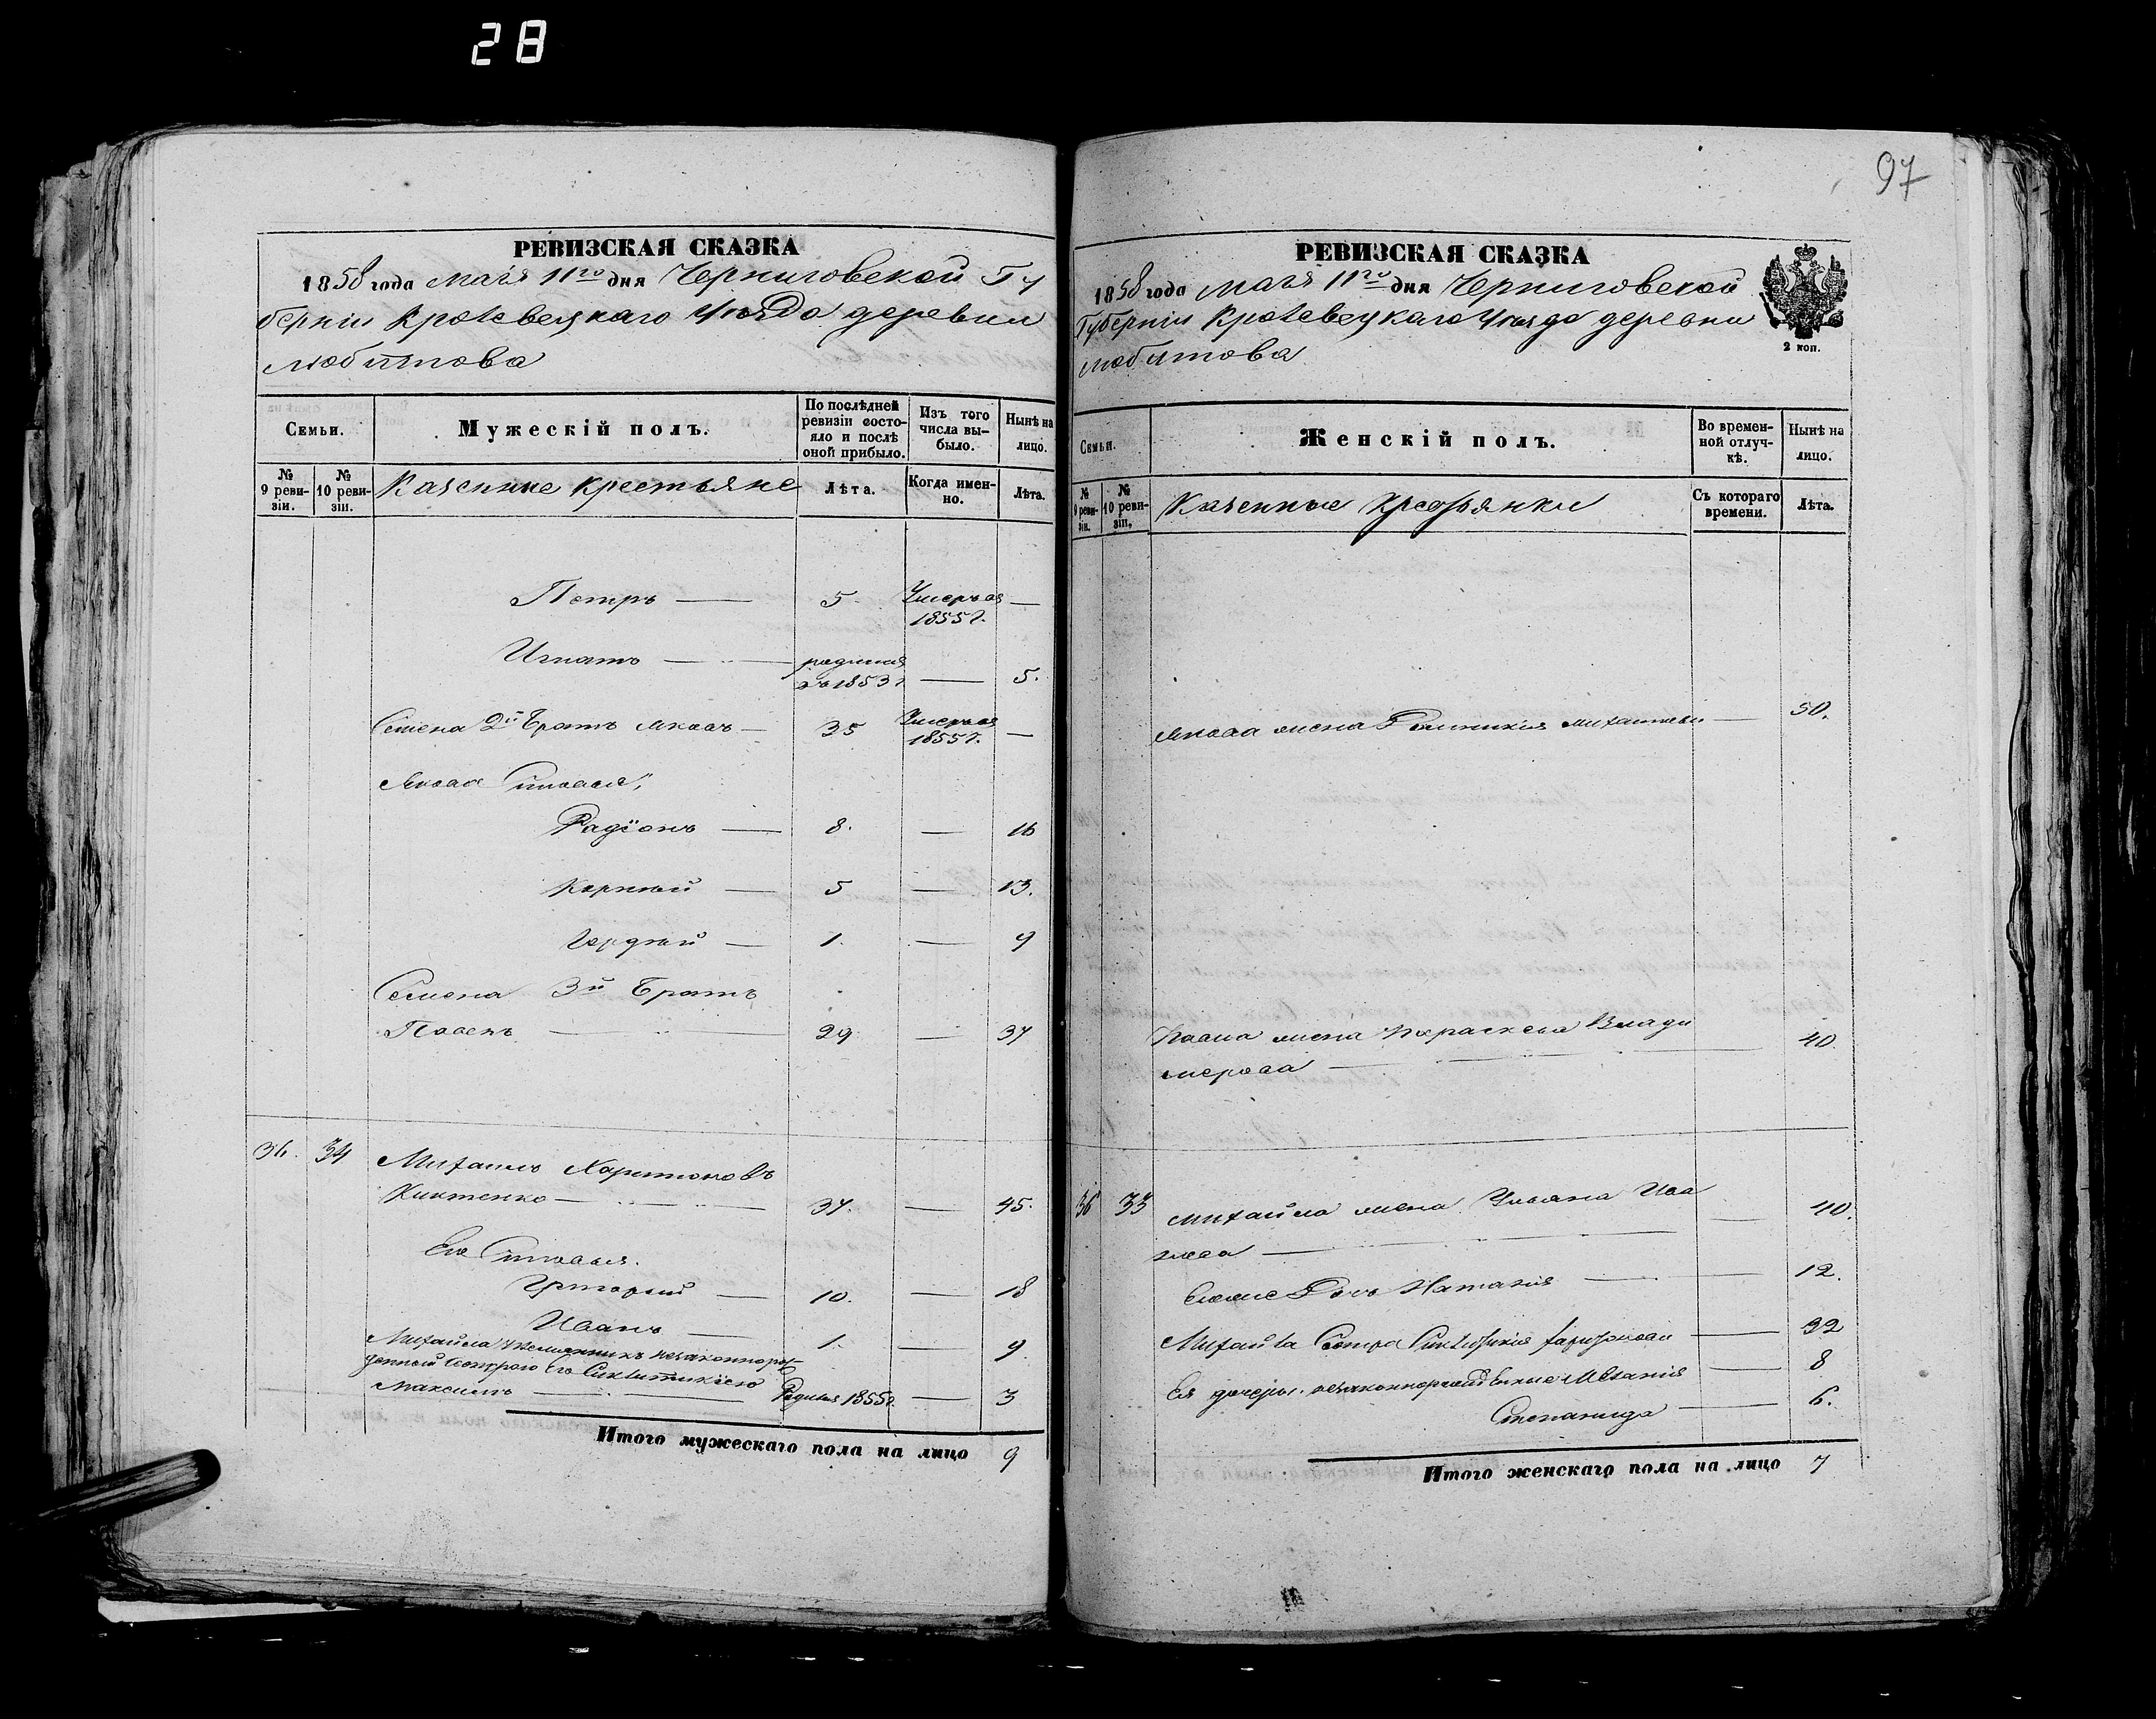 28
97
РЕВИЗСКАЯ СКАЗКА
1858 года мая 11го дня Черниговской Гу
берніи Кролевецкаго Уѣзда деревни
Любитова
Семьи.
Мужескій полъ.
По послѣдней ревизіи состояло и послѣ оной прибыло.
Изъ того числа выбыло.
Нынѣ на лицо.
№ 9 ревизіи.
№ 10 ревизіи.
Казенные крестьяне
Лѣта.
Когда именно.
Лѣта.
Петръ — 5. Умеръ въ 1855 г. —
Игнатъ — родился въ 1853 г — 5.
Семена 2й Братъ Яковъ — 35 Умеръ въ 1855 г. —
Якова Сыновья,
Радіонъ — 8. — 16
Корный — 5 — 13.
Гордѣй — 1. — 9
Семена 3й Братъ
Павелъ — 29 — 37
36. 34 Михаилъ Харитоновъ
— 37. — 45.
Его Сыновья.
Григорій — 10. — 18
Иванъ — 1. — 9
Михайла племянникъ незаконнорож
денный сестрою его
Максимъ — Родился 1855 г. — 3
Итого мужескаго пола на лицо 9
РЕВИЗСКАЯ СКАЗКА
1858 года мая 11го дня Черниговской
Губерніи Кролевецкаго Уѣзда деревни
Любитова
2 коп.
Семьи.
Женскій полъ.
Во временной отлучкѣ.
Нынѣ на лицо.
№ 9 ревизіи.
№ 10 ревизіи.
Казенные Крестьянки
Съ котораго времени.
Лѣта.
Якова жена — 50.
Павла жена Параскевья Влади
мерова — 40.
36 33 Михайла жена Ульяна Ива
нова — 40.
Дочь Наталія — 12.
Михайла Сестра — 32
Ея дочери незаконнорожденные Меланія — 8
Степанида — 6.
Итого женскаго пола на лицо 7